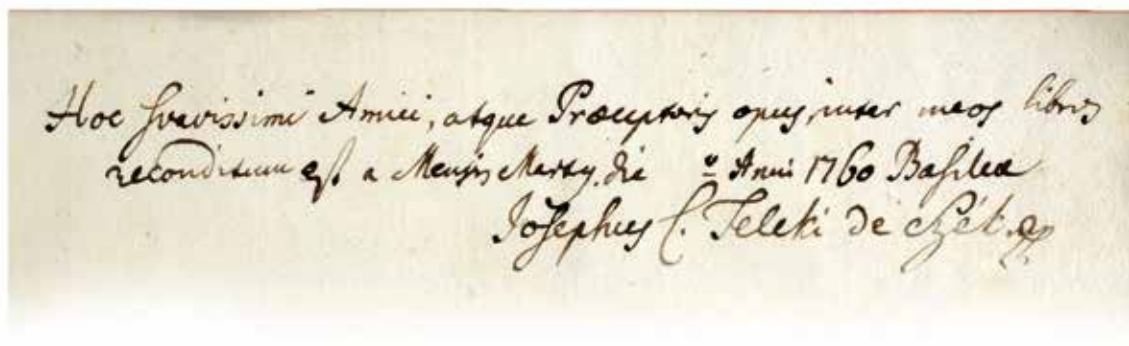 Hoc svavissimi Amici, atque Præceptoris opus, inter meos libros
reconditum est a Mensis Martij die º Anni 1760 Basileæ
Josephus C. Teleki de Szék